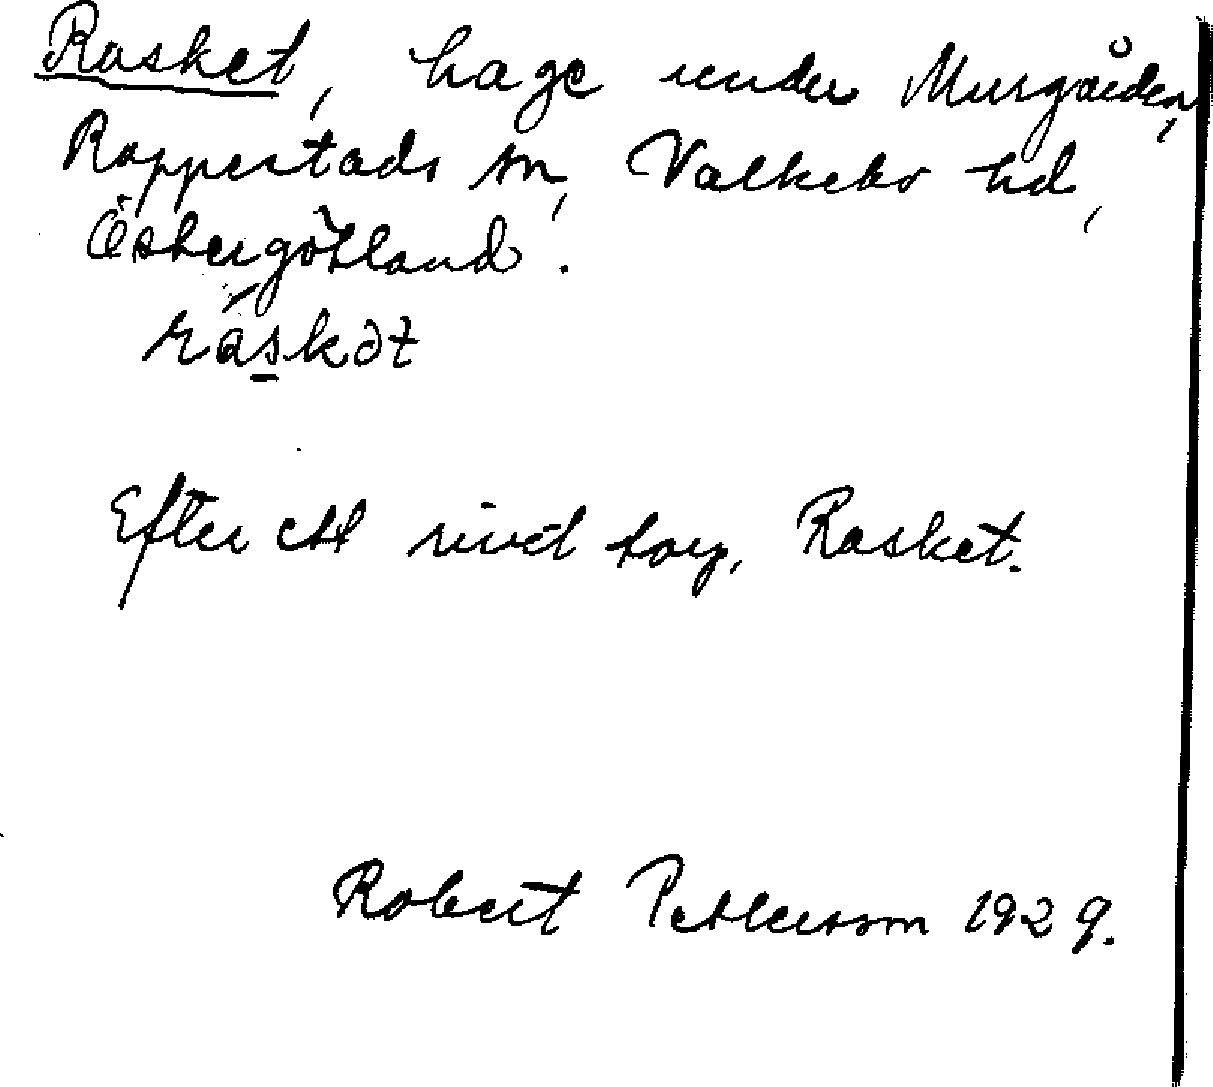 Rasket, hage under Murgården,
Rappestads sn, Valkebo hd,
Östergötland.
ráskət
Efter ett rivet torp, Rasket.
Robert Pettersson 1929.